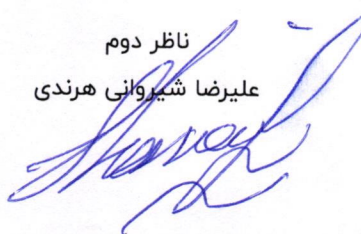 ناظر دوم
علیرضا شیروانی هرندی